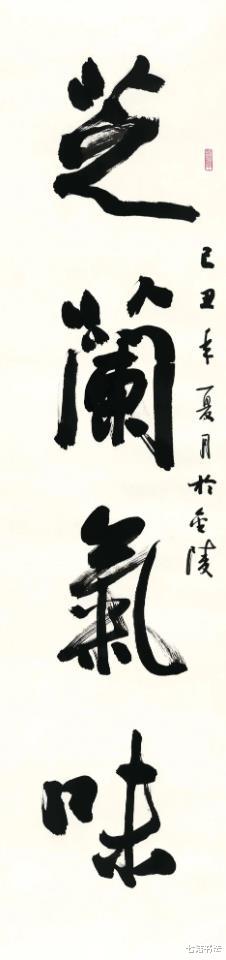 芝蘭氣味
己丑年夏月於金陵
七活书法